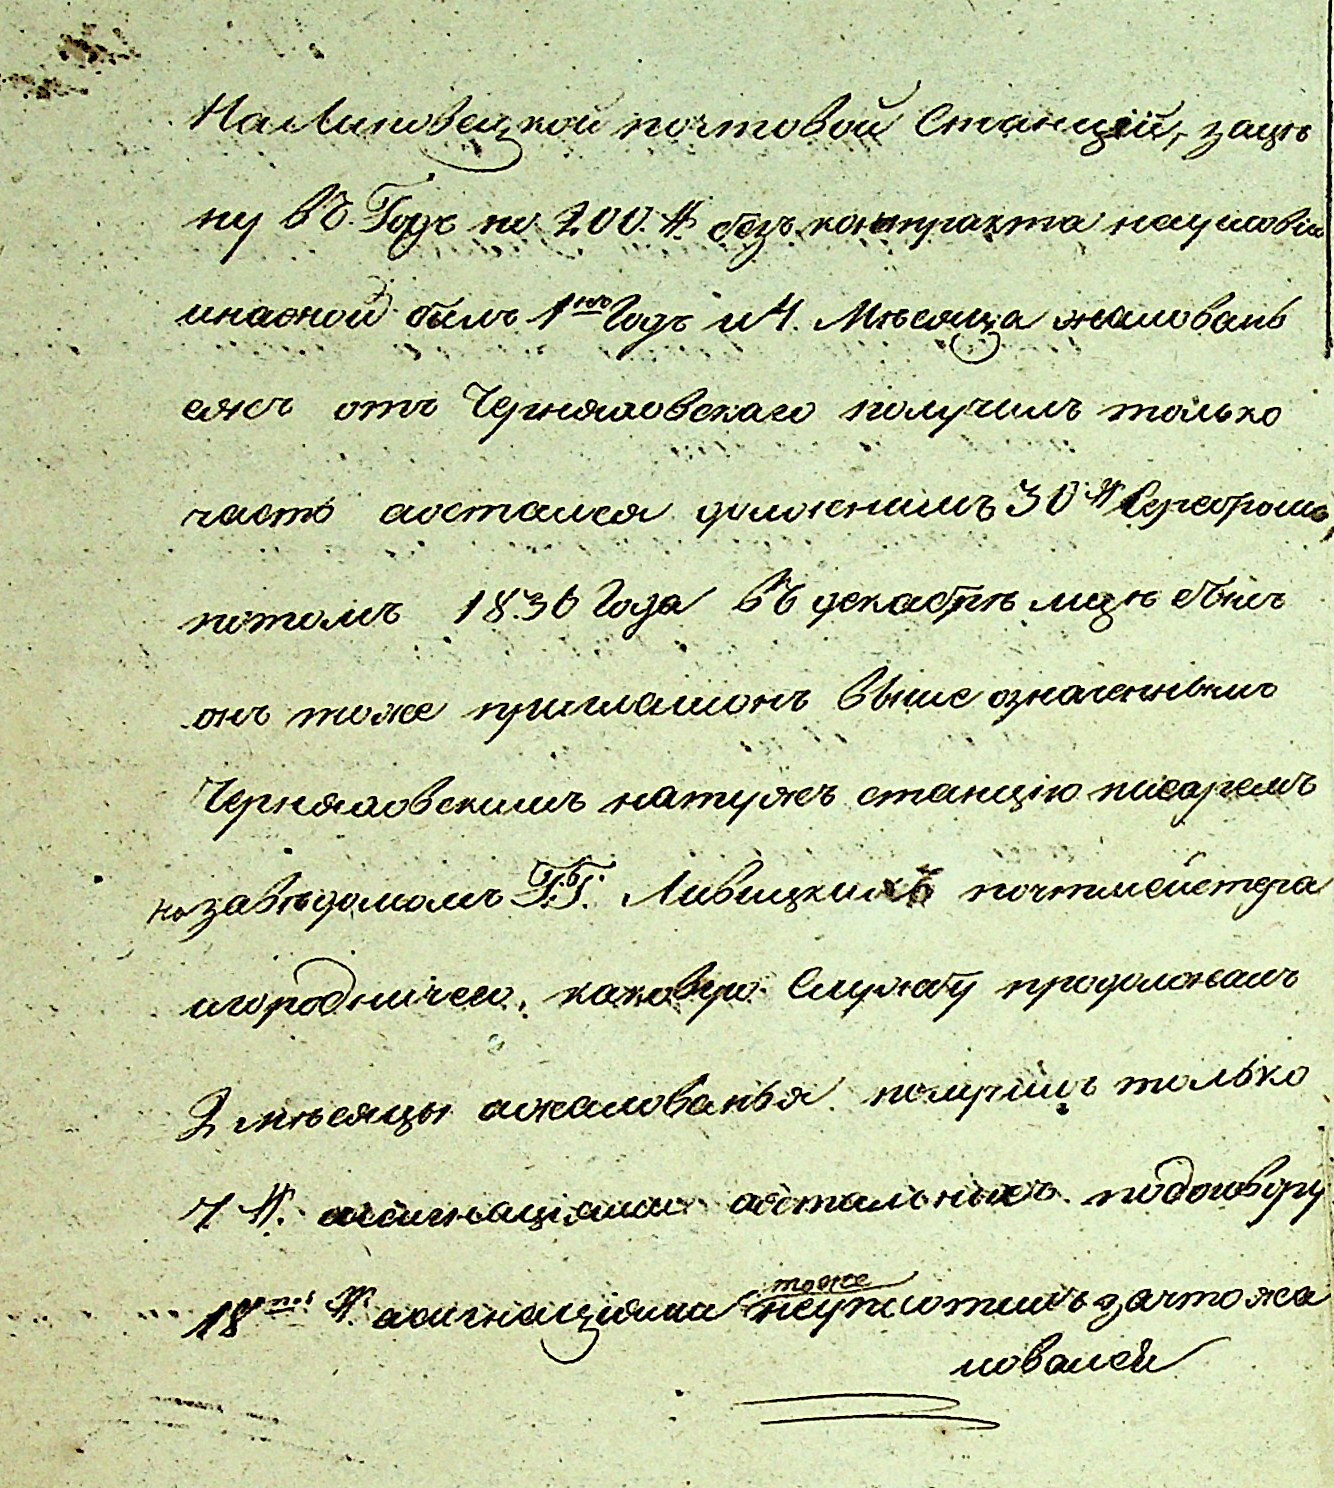 На Липовецкой почтовой Станціи, зацѣ
ну въ Годъ по 200. безъ контракта науловіи
инасной былъ 1 Годъ и 4. Мѣсяца жаловань
еяжъ отъ Черняховскаго получилъ только
часть аостался должнимъ 30 Сучетромъ,
потомъ 1836 Года въ декабрѣ мцѣ былъ
онъ тоже приглашонъ выше означеннымъ
Черняховскимъ натужъ станцію писаремъ
назавѣдомомъ Г.Г. Ливицкихъ почтмейстера
игородничего, каковую Службу продолжалъ
2 мѣсяцы ажалованья получилъ только
7 асигнаціями аостальныхъ подоговору
18 асигнаціями тоже
неуплотилъ зачто жа
ловался